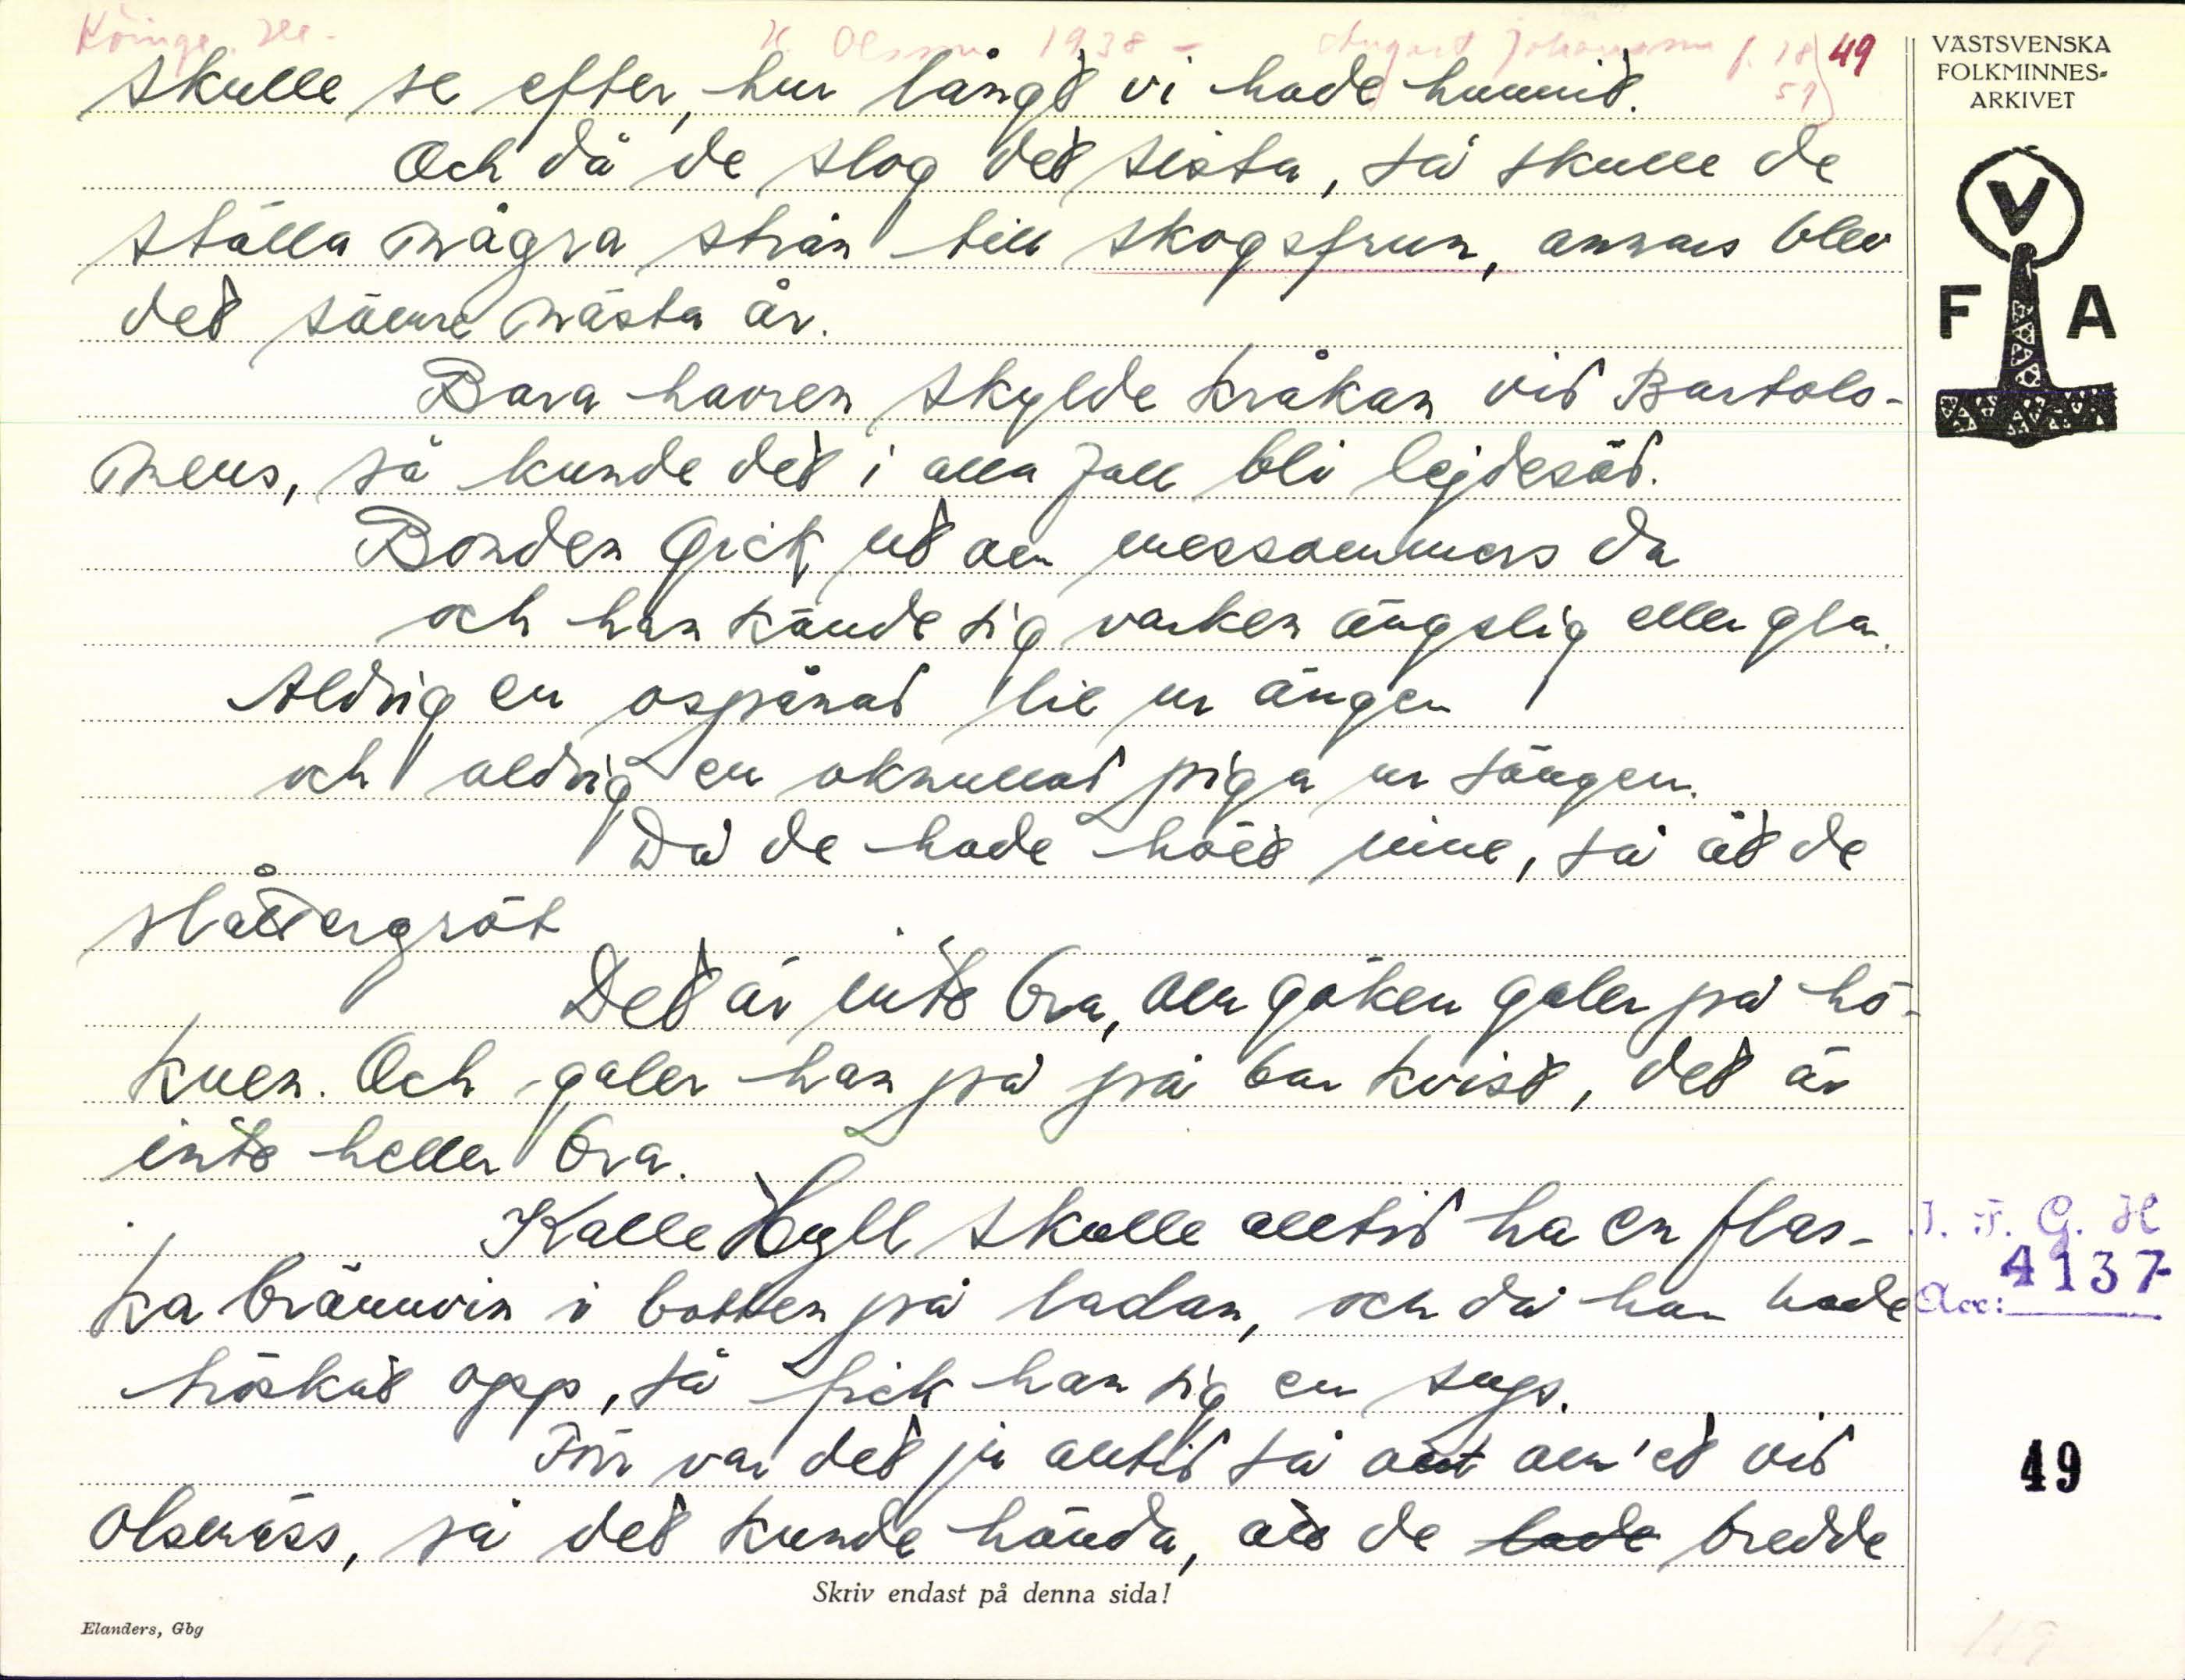 Köinge. Hl. K. Olsson 1938 - August Johansson f. 18 49
51
VÄSTSVENSKA
FOLKMINNES-
ARKIVET
V
F A
skulle se efter, hur långt vi hade hunnit.
Och då de slog det sista, så skulle de
ställa några strån till skogsfrun, annars blev
det sämre nästa år.
Bara havren skylde kråkan vid Bartols-
meus, så kunde det i alla fall bli lejdesäd.
Bonden gick ut om messommers da
och han kände sig varken ängslig eller gla.
Aldrig en ospånad lie ur ängen
och aldrig en oknullad piga ur sängen.
Då de hade höet inne, så åt de
slåttergröt
Det är inte bra, om göken galer på hö-
kuen. Och galer han på på bar kvist, det är
inte heller bra.
Kalle Hyll skulle alltid ha en flas-
ka brännvin i botten på ladan, och då han hade
höskat opp, så fick han sig en sups.
Förr var det ju alltid så ont om'et vid
Olsmäss, så det kunde hända, att de lade bredde
I. F. G. H
Acc: 4137
49
Skriv endast på denna sida!
Elanders, Gbg
119